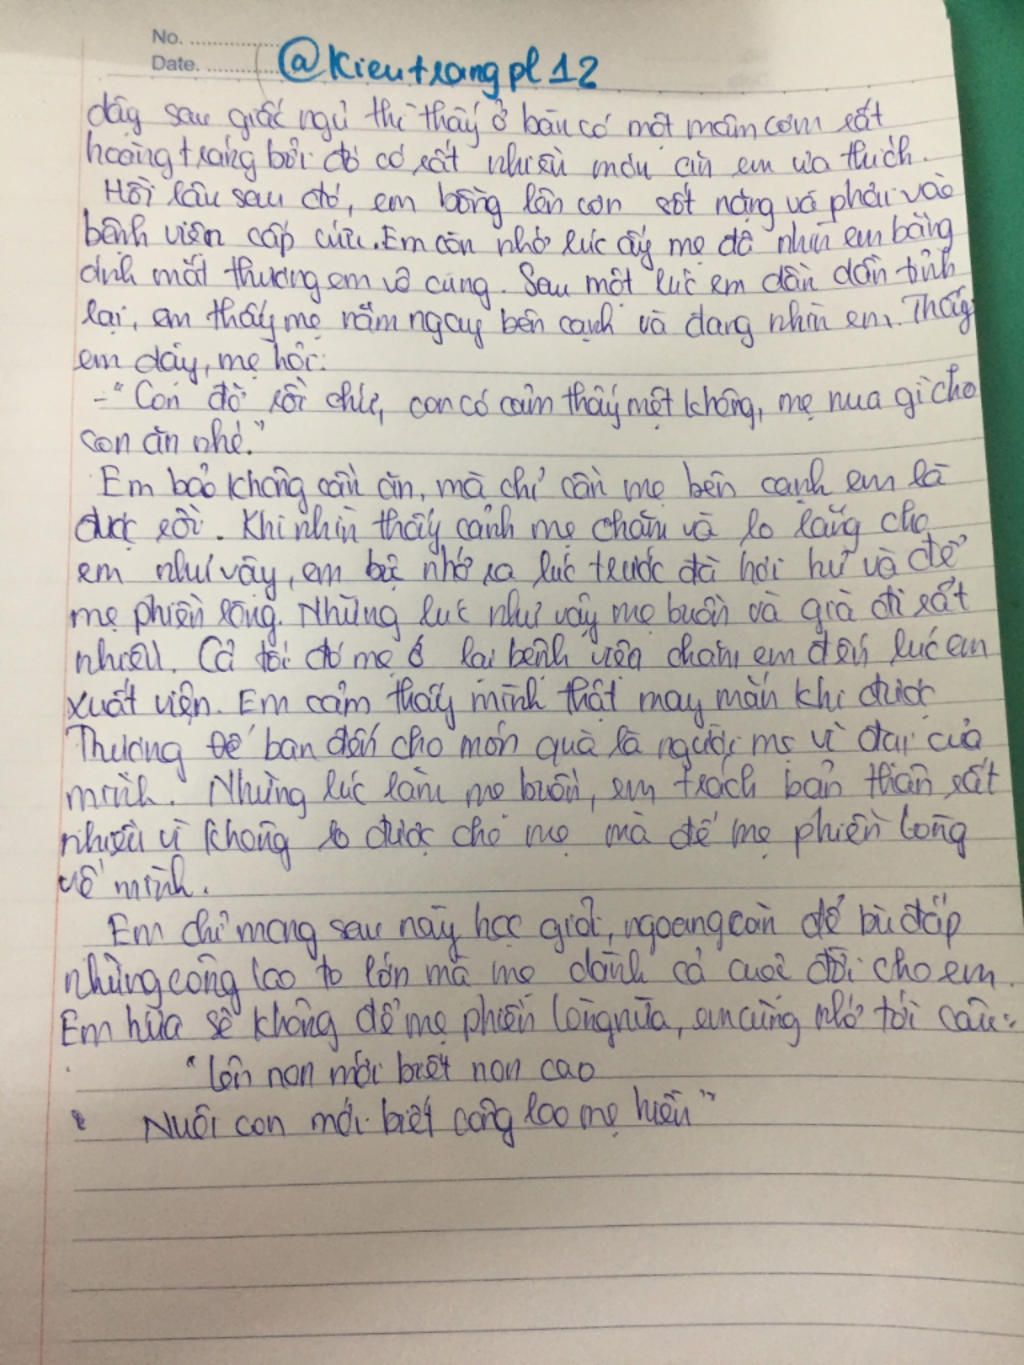 No. ..............
Date. ..............
@Kieutrangpl12
dậy sau giấc ngủ thì thấy ở bàn có một mâm cơm rất
hoàng tráng bởi đó có rất nhiều món ăn em ưa thích.
Hồi lâu sau đó, em bỗng lên cơn sốt nặng và phải vào
bệnh viện cấp cứu. Em còn nhớ lúc ấy mẹ đã nhìn em bằng
ánh mắt thương em vô cùng. Sau một lúc em dần dần tỉnh
lại, em thấy mẹ nằm ngay bên cạnh và đang nhìn em. Thấy
em dậy, mẹ hỏi:
-“Con đỡ rồi chứ, con có cảm thấy mệt không, mẹ mua gì cho
con ăn nhé.”
Em bảo không cần ăn, mà chỉ cần mẹ bên cạnh em là
được rồi. Khi nhìn thấy cảnh mẹ chăm và lo lắng cho
em như vậy, em nhớ ra lúc trước đã hơi hư và để
mẹ phiền lòng. Những lúc như vậy mẹ buồn và già đi rất
nhiều. Cả tối đó mẹ ở lại bệnh viện chăm em đến lúc em
xuất viện. Em cảm thấy mình thật may mắn khi được
Thượng Đế ban đến cho món quà là người mẹ vĩ đại của
mình. Những lúc làm mẹ buồn, em trách bản thân rất
nhiều vì không lo được cho mẹ mà để mẹ phiền lòng
về mình.
Em chỉ mong sau này học giỏi, ngoan ngoãn để bù đắp
những công lao to lớn mà mẹ dành cả cuộc đời cho em.
Em hứa sẽ không để mẹ phiền lòng nữa, em cũng nhớ tới câu:
“Lên non mới biết non cao
Nuôi con mới biết công lao mẹ hiền”